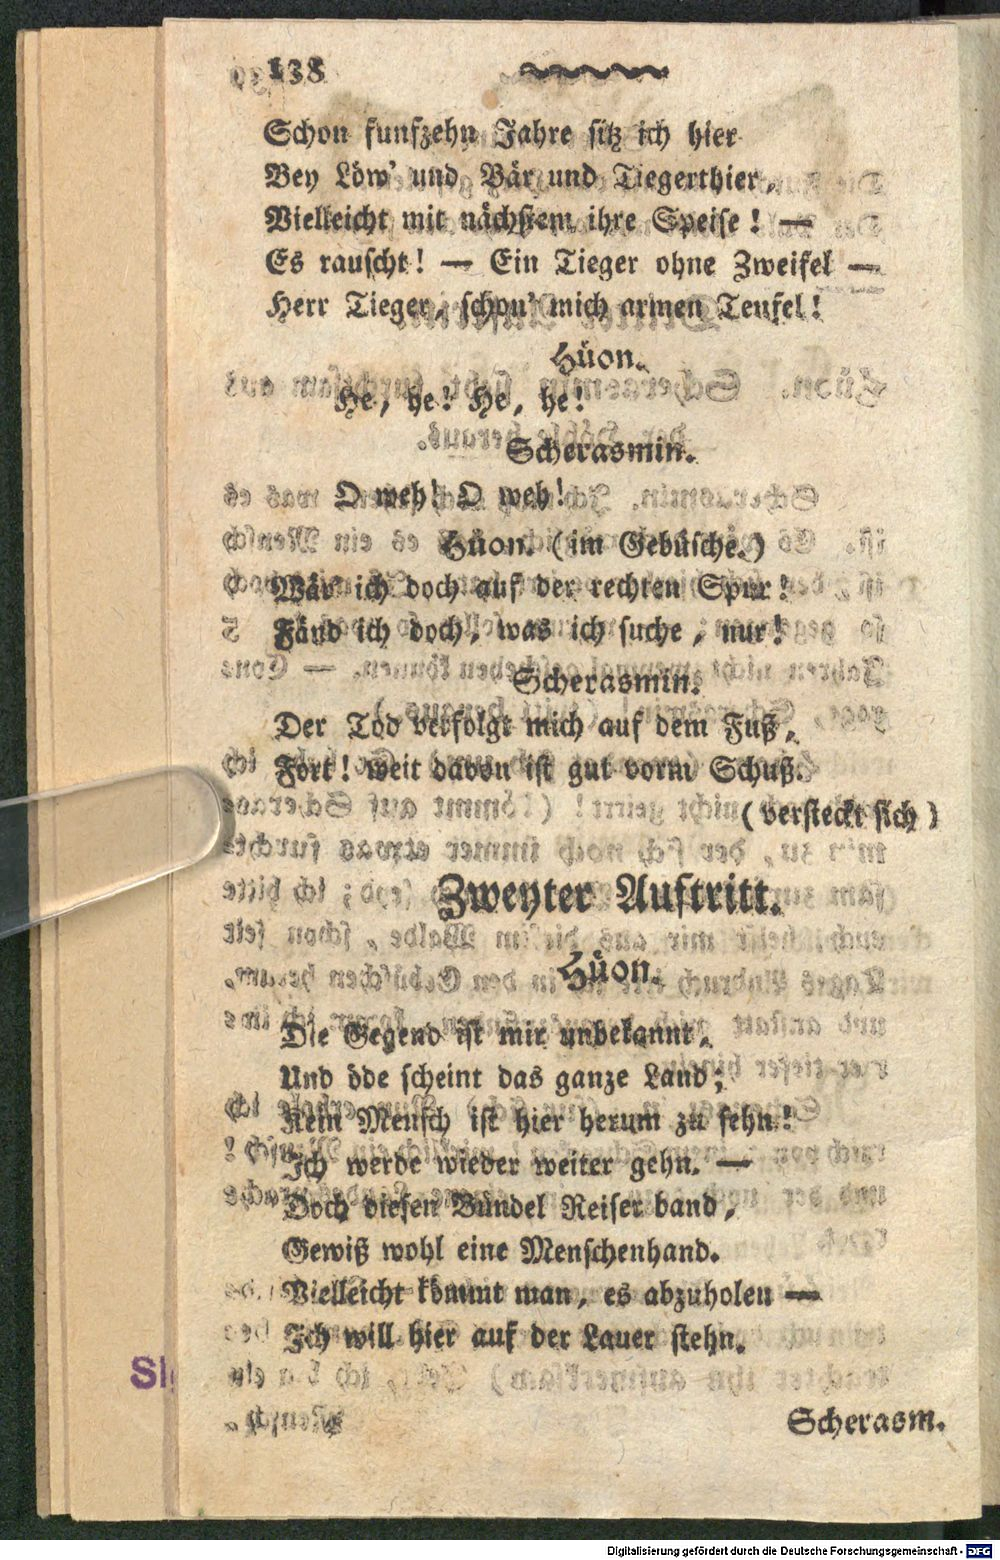 138
Schon funfzehn Jahre sitz ich hier
Bey Löw' und Bär und Tiegerthier,
Vielleicht mit nächstem ihre Speise! —
Es rauscht! — Ein Tieger ohne Zweifel —
Herr Tieger, schon' mich armen Teufel!
Hüon.
He, he! He, he!
Scherasmin.
O weh! O weh!
Hüon. (im Gebüsche.)
Wär ich doch auf der rechten Spur!
Fänd ich doch, was ich suche, nur!
Scherasmin.
Der Tod verfolgt mich auf dem Fuß,
Fort! weit davon ist gut vorm Schuß.
(versteckt sich)
Zweyter Auftritt.
Hüon.
Die Gegend ist mir unbekannt,
Und öde scheint das ganze Land;
Kein Mensch ist hier herum zu sehn!
Ich werde wieder weiter gehn. —
Doch diesen Bündel Reiser band,
Gewiß wohl eine Menschenhand.
Vielleicht kömmt man, es abzuholen —
Ich will hier auf der Lauer stehn.
Scherasm.
Digitalisierung gefördert durch die Deutsche Forschungsgemeinschaft - DFG